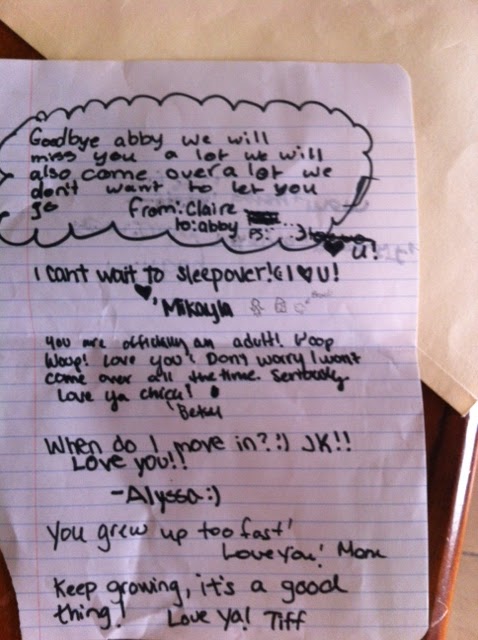 Goodbye abby we will
miss you a lot we will
also come over a lot we
don't want to let you
go
From: Claire
to: abby
PS:
♥ U!
I cant wait to sleepover! I ♥ U!
♥ Mikayla
You are officially an adult! Woop
Woop! Love you! Dont worry I wont
come over all the time. Seriously.
Love ya chica!
When do I move in?:) JK!!
Love you!!
-Alyssa:)
You grew up too fast!
Love You! Mom
Keep growing, it's a good
thing! Love Ya! Tiff